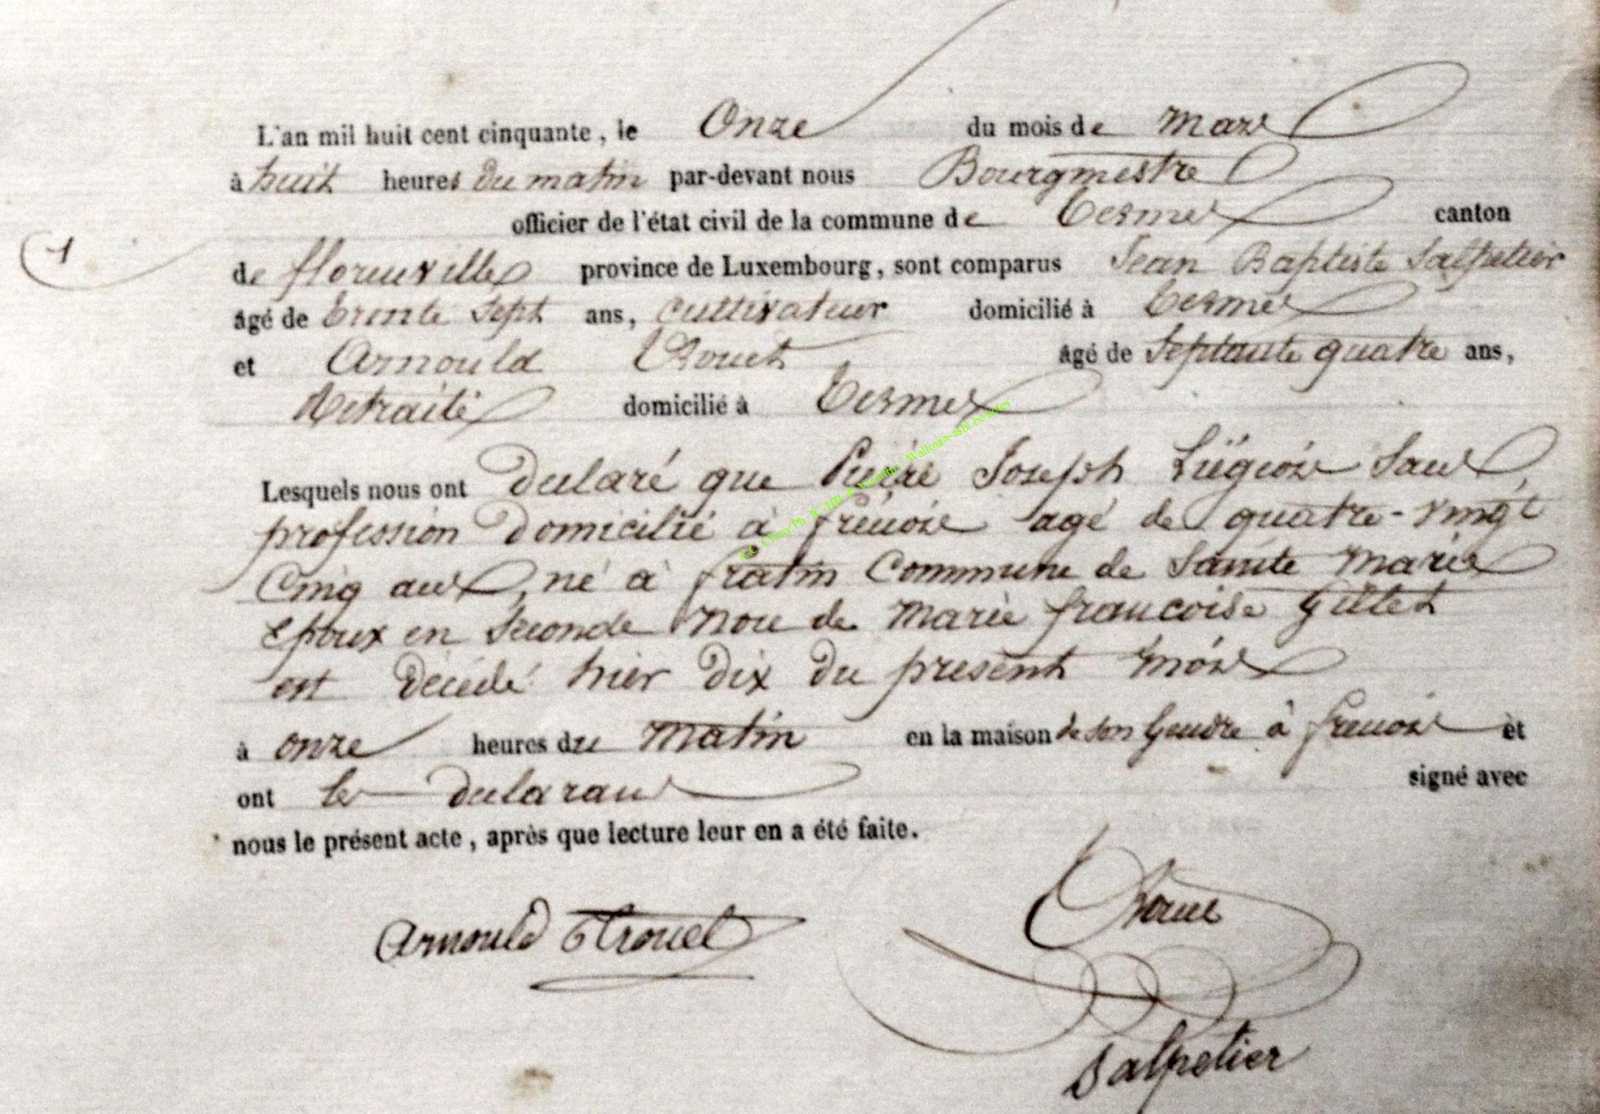 L'an mil huit cent cinquante, le Onze du mois de mars
à huit heures du matin par-devant nous Bourgmestre
officier de l'état civil de la commune de Termes canton
1
de florenville province de Luxembourg, sont comparus Jean Baptiste Salpetier
âgé de trente sept ans, cultivateur domicilié à Termes
et Arnould Trouet âgé de septante quatre ans,
Retraité domicilié à Termes
Lesquels nous ont declaré que Pierre Joseph Liégeois Sans
profession domicilié à frénois agé de quatre-vingt
cinq ans, né à fratin Commune de Sainte Marie
Epoux en Seconde Noce de Marie francoise Gillet
est décédé hier dix du present mois
à onze heures du matin en la maison de son Gendre à frenois et
ont les declarans signé avec
nous le présent acte, après que lecture leur en a été faite.
Arnould Trouet
Salpetier